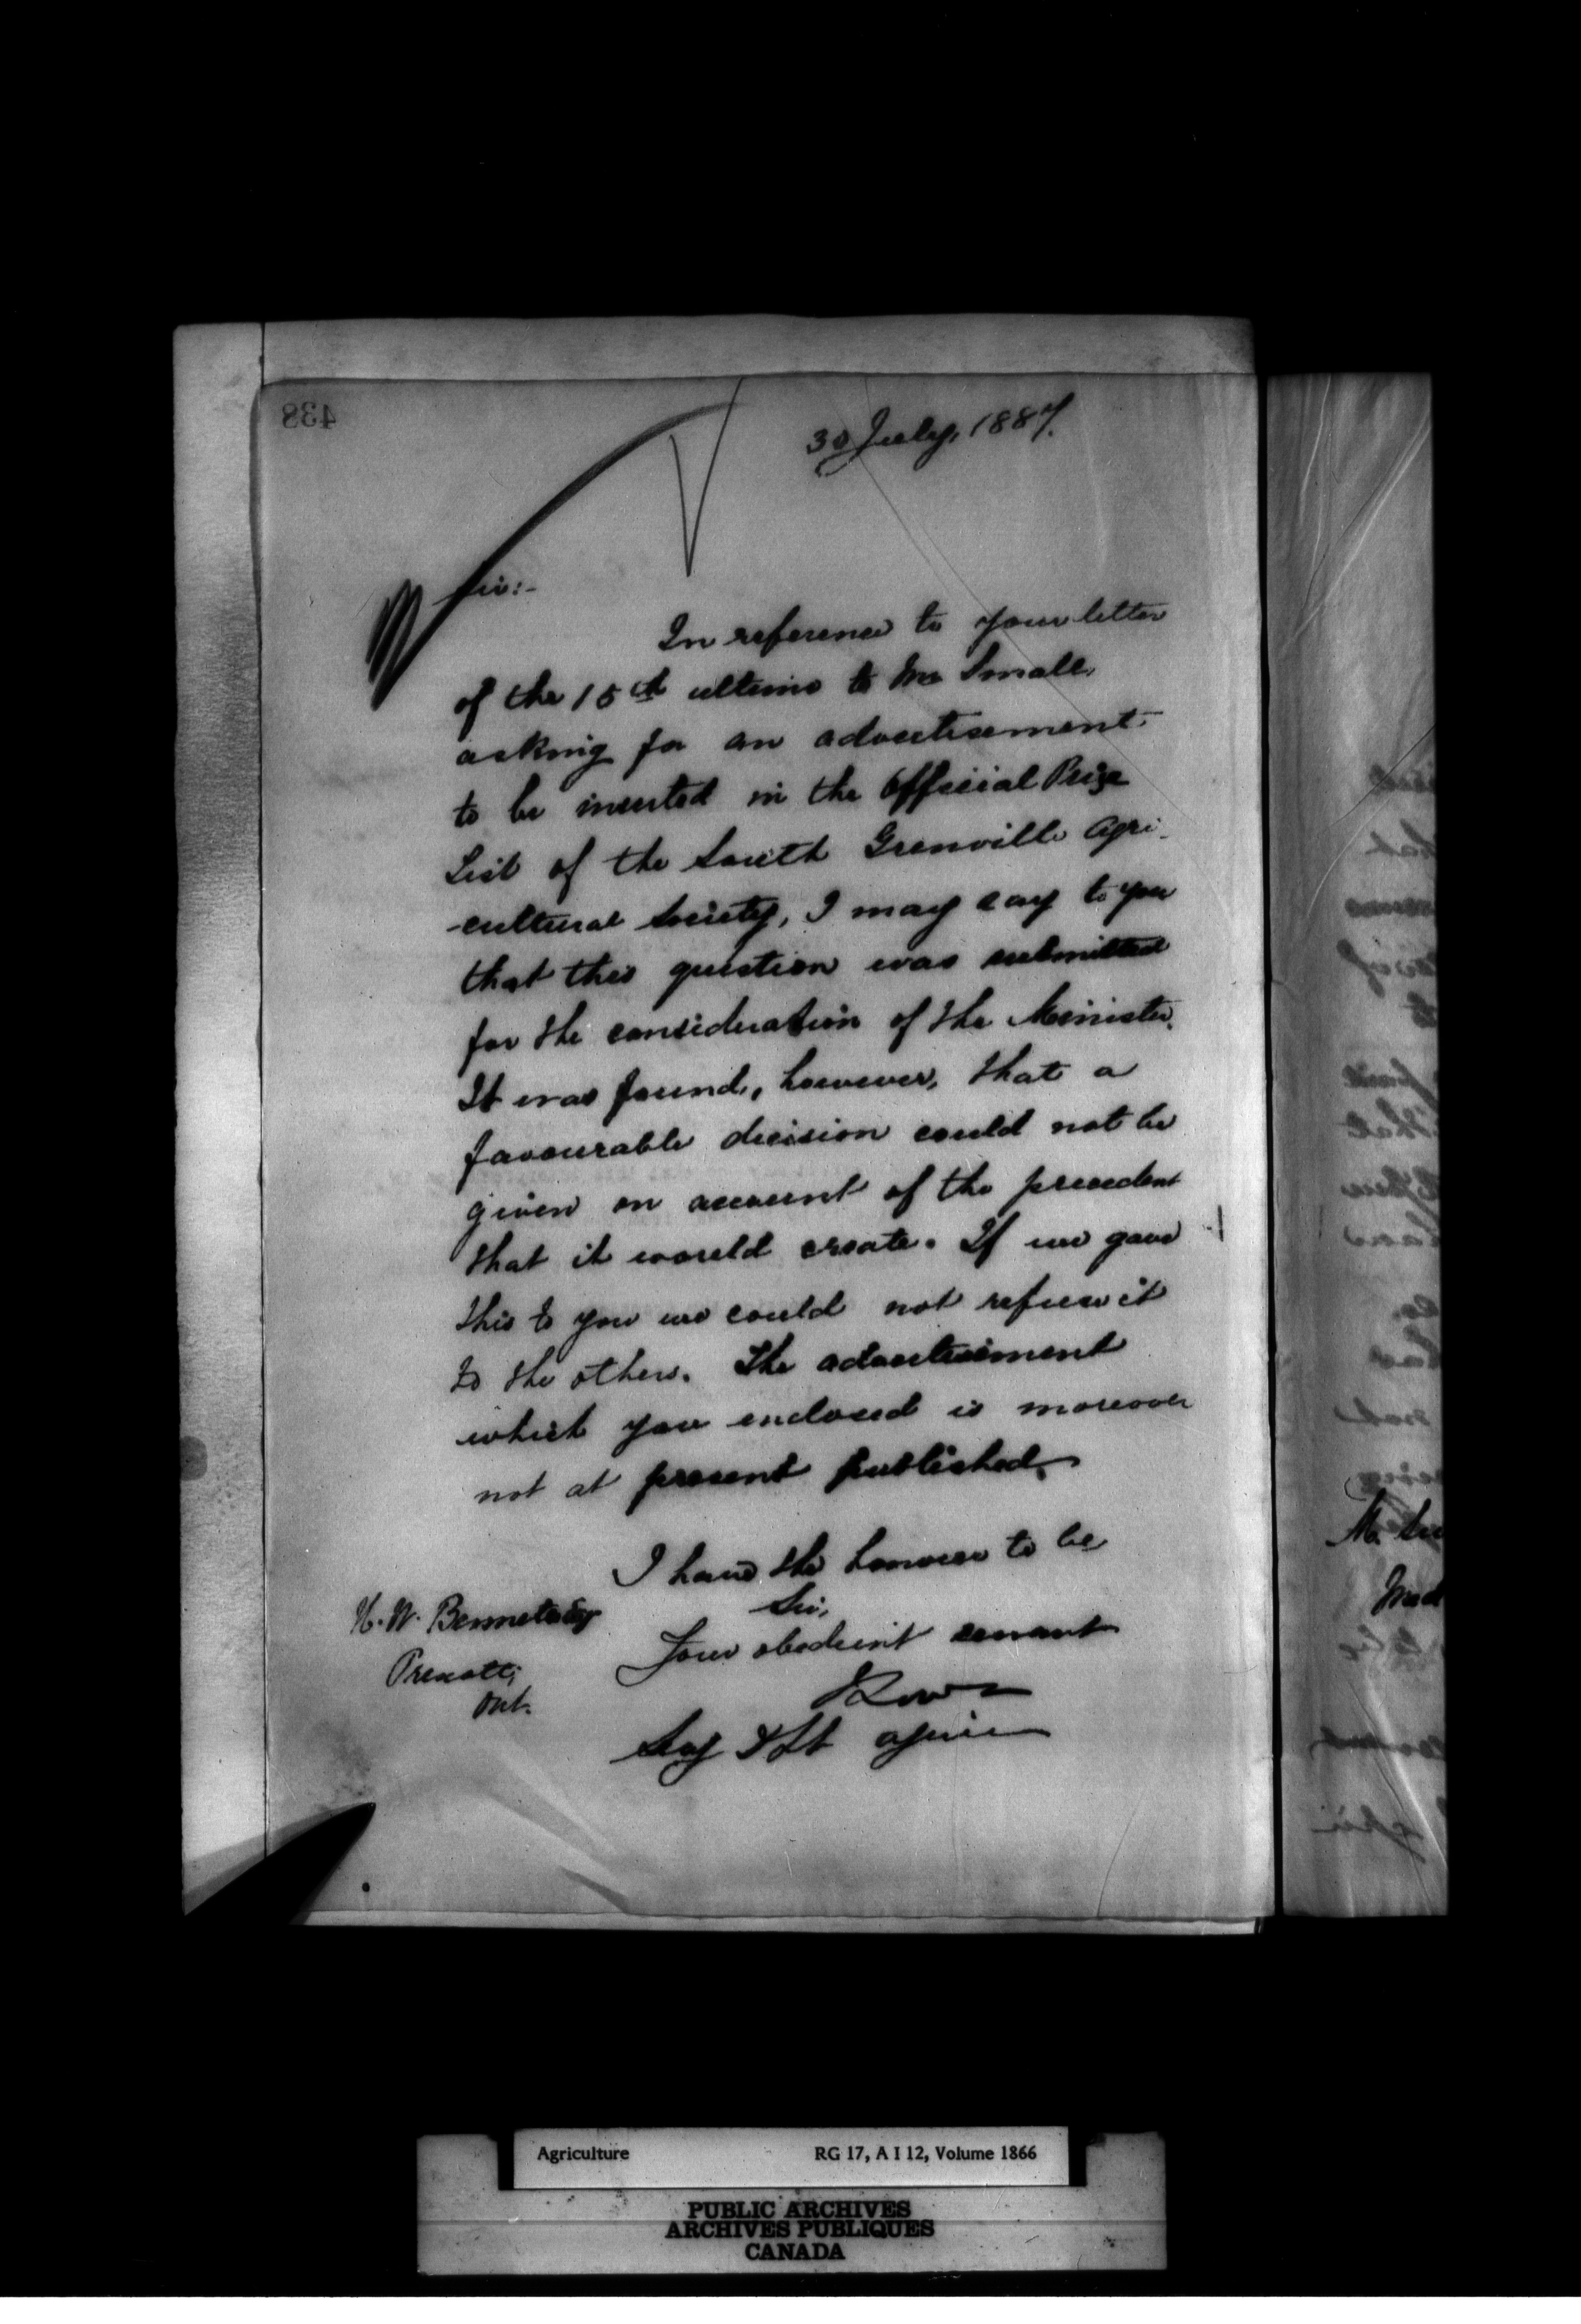 438
30 July, 1887.
Sir:-
In reference to your letter
of the 15th ultimo to Mr Small,
asking for an advertisement
to be inserted in the Official Prize
List of the South Grenville Agri-
-cultural Society, I may say to you
that this question was submitted
for the consideration of the Minister.
It was found, however, that a
favourable decision could not be
given on account of the precedent
that it would create. If we gave
this to you we could not refuse it
to the others. The advertisement
which you enclosed is moreover
not at present published.
I have the honour to be
Sir,
Your obedient servant
H. W. Bennet Esq
Prescott,
Ont.
Agriculture RG 17, A I 12, Volume 1866
PUBLIC ARCHIVES
ARCHIVES PUBLIQUES
CANADA